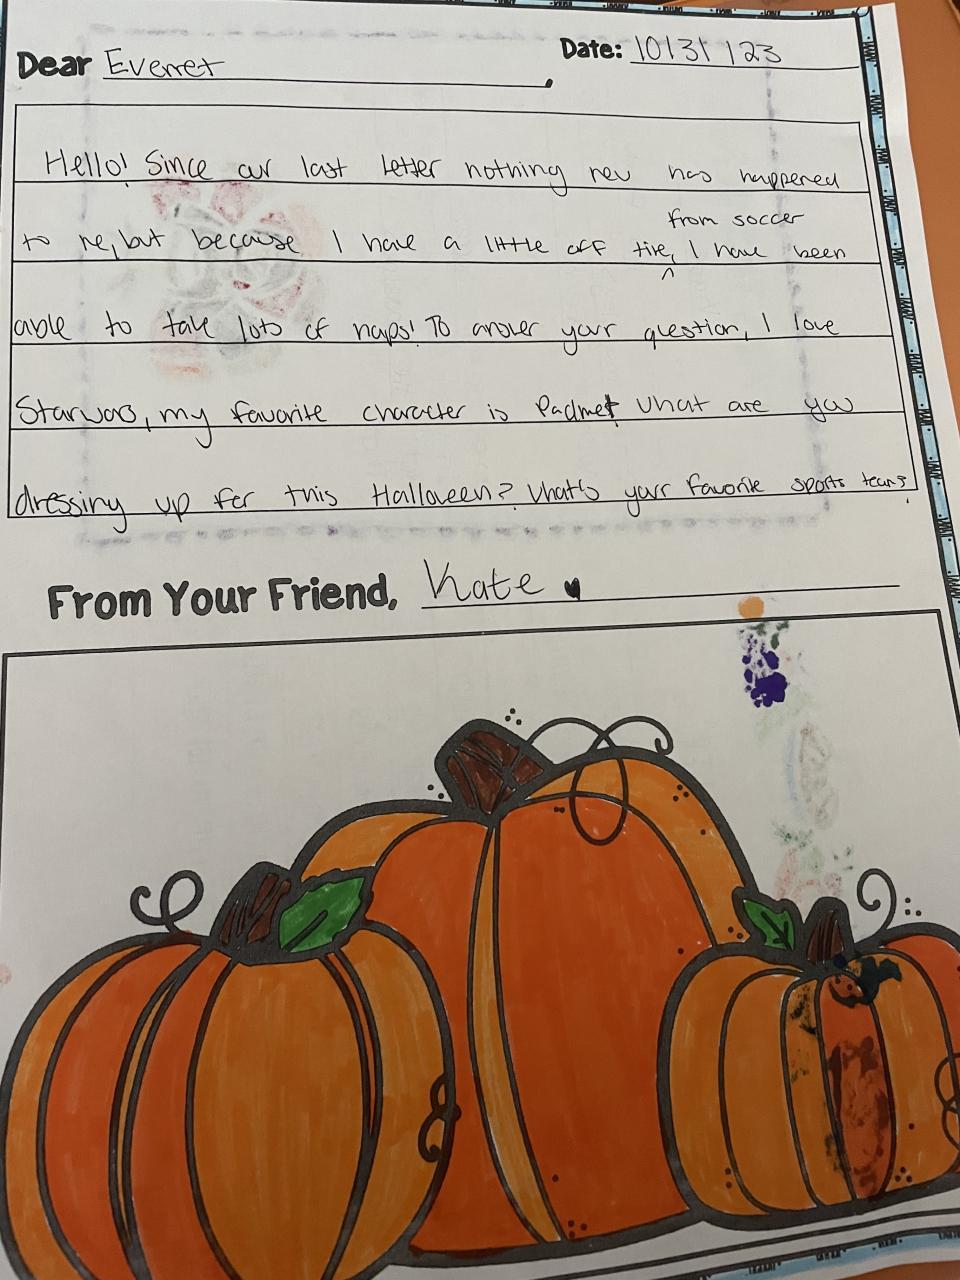 Dear Everret.
Date: 10/31/23
Hello! Since our last letter nothing new has happened
from soccer
to me, but because I have a little off time, ^ I have been
able to take lots of naps! To answer your question, I love
Starwars, my favorite character is Padme! What are you
dressing up for this Halloween? What's your favorite sports team?
From Your Friend, Kate ♥